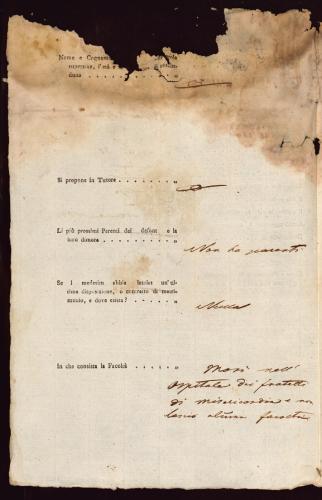 Nome e Cognome
Si propone in Tutore . . . . . . . „
Li più prossimi Parenti del defont e la
loro dimora . . . . . . . . . „
Non ha parenti
Se i medesim abbia lasciat un'ul-
tima disposizione, o contratto di matri-
monio, e dove esista? . . . . . . „
Nulla
In che consista la Facoltà . . . . . „
Morì nell'
Ospitale dei fratelli
di misericordia e non
lasciò alcuna facoltà